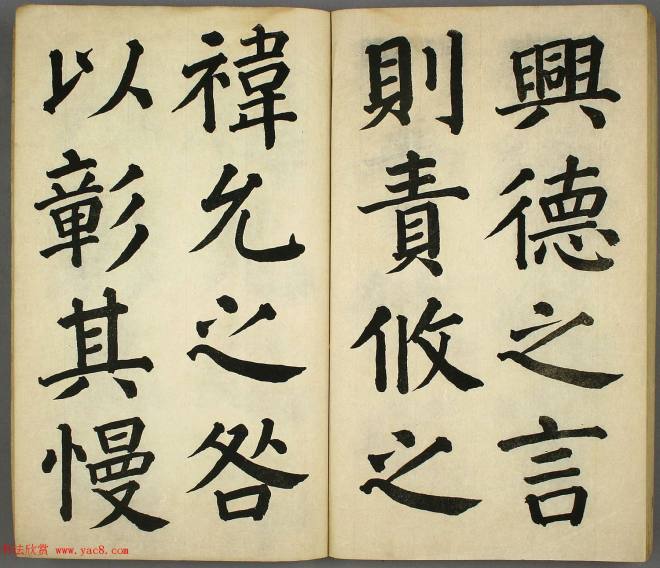 興德之言
則責攸之
禕允之咎
以彰其慢
法欣赏 www.yac8.com